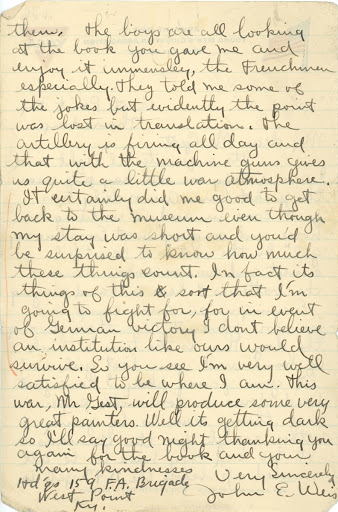 them. The boys are all looking
at the book you gave me and
enjoy it immensley, the Frenchmen
especially. They told me some of
the jokes but evidently the point
was lost in translation. The
artillery is firing all day and
that with the machine guns gives
us quite a little war atmosphere.
It certainly did me good to get
back to the museum even though
my stay was short and you'd
be surprised to know how much
these things count. In fact its
things of this & sort that I'm
going to fight for, for in event
of German victory I dont believe
an institution like ours would
survive. So you see I'm very well
satisfied to be where I am. This
war, Mr Gest, will produce some very
great painters. Well its getting dark
so I'll say good night thanking you
again for the book and your
many kindnesses
Very Sincerely
John E. Weis
Hdqs 159 F.A. Brigade
West Point
Ky.